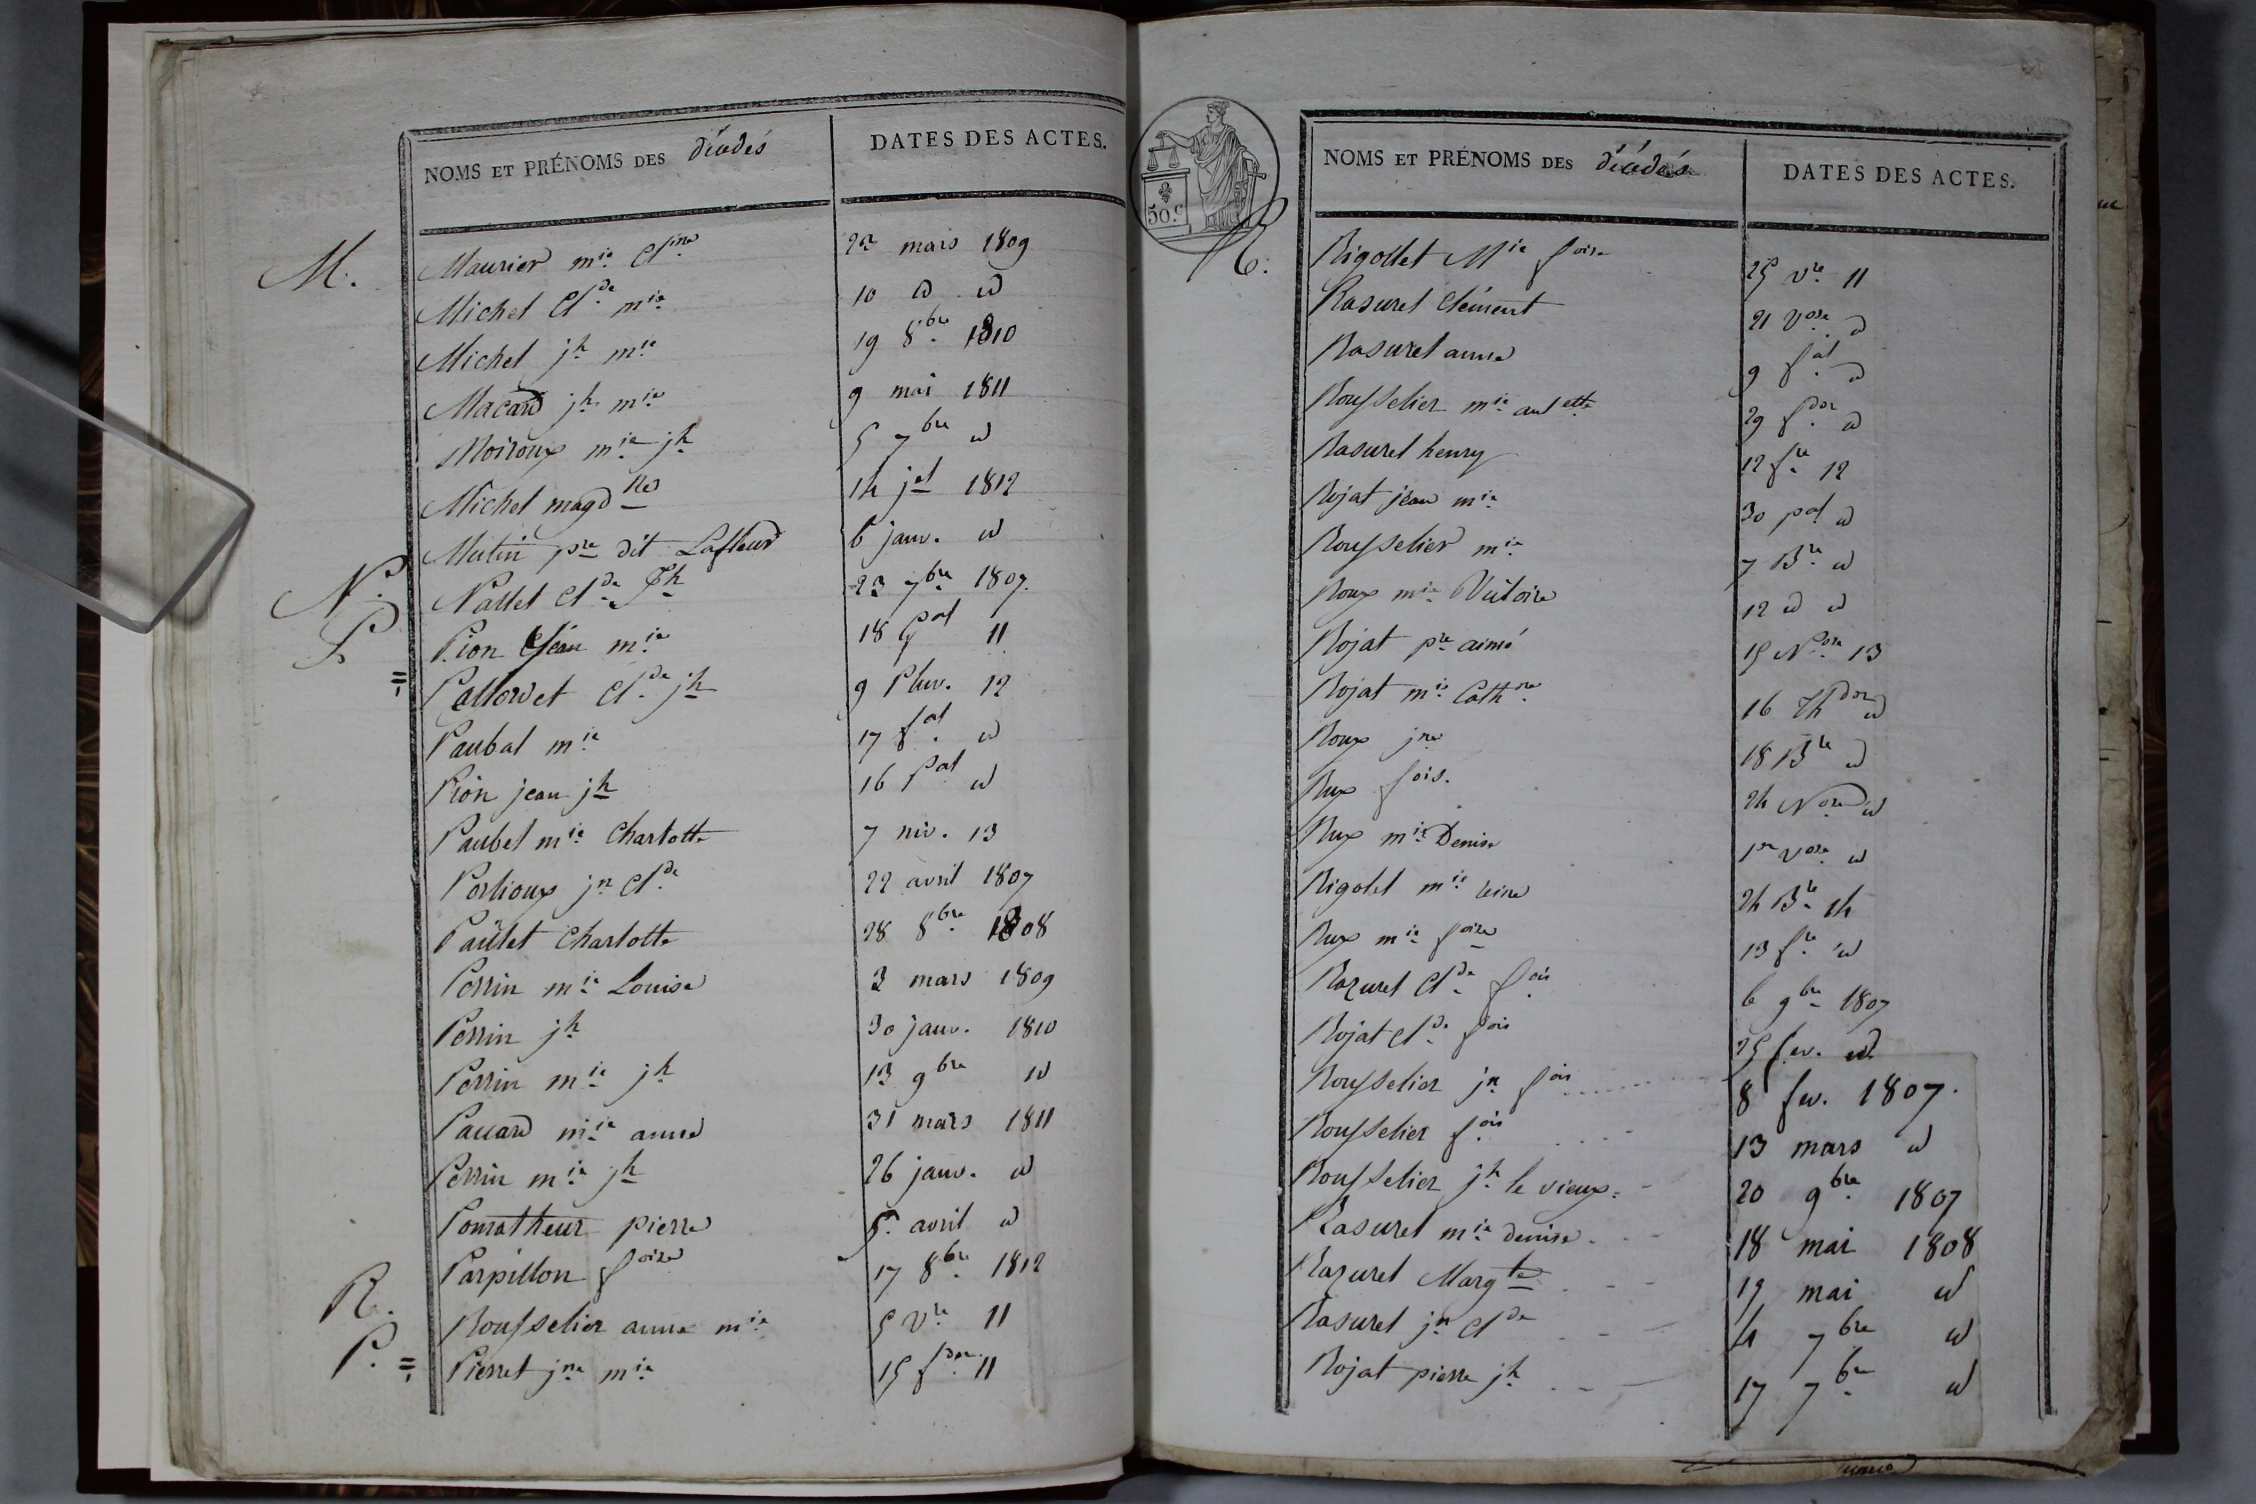 NOMS ET PRÉNOMS DES décédés DATES DES ACTES.
M. Maurier mie Cline 22 mars 1809
Michel Clde mie 10 d d
Michel jh mie 19 8bre 1810
Macard jh mie 9 mai 1811
Moiroux mie jh 5 7bre d
Michel magdne 14 jet 1812
Mutin pre dit Lafleur 6 janv. d
N. Nallet Clde Jh 23 7bre 1807.
P. Pion Jean mie 18 Gal 11
= Pallordet Clde jh 9 Pluv. 12
Paubal mie 17 fal d
Pion jean jh 16 Pal d
Paubel mie Charlotte 7 niv. 13
Perlioux jn Clde 22 avril 1807
Paület Charlotte 28 8bre 1808
Perrin mie Louise 2 mars 1809
Perrin jh 30 janv. 1810
Perrin mie jh 13 9bre d
Paccard mie anne 31 mars 1811
Perrin mie jh 26 janv. d
Pomatheur pierre 5. avril d
Parpillon foise 17 8bre 1812
R. Rousselier anne mie 5 Vre 11
P. = Pierret jne mie 15 fdor 11
50.c
NOMS ET PRÉNOMS DES décédés DATES DES ACTES.
R. Rigollet Mie foise 25 vre 11
Rasurel Clément 21 Vose d
Rasurel anne 9 fal d
Rousselier mie antette 29 fdor d
Rasurel henry 12 fre 12
Rojat jean mie 30 pal d
Rousselier mie 7 Bre d
Roux mie Victoire 12 d d
Rojat pre aimé 15 Nose 13
Rojat mie Cathne 16 Thdor d
Roux jne 18 Bre d
Rux fois. 24 Nose d
Rux mie Denise 1er vose d
Rigolet mie reine 24 Bre 14
Rux mie foise 13 fre d
Razurel Clde fois 6 9bre 1807
Rojat Clde fois 25 fev. d
Rousselier jn fois 8 fev. 1807.
Rousselier fois 13 mars d
Rousselier jh le vieux 20 9bre 1807
Rasurel mie denise 18 mai 1808
Razurel Margte 19 mai d
Rasurel jn Clde 4 7bre d
Rojat pierre jh 17 7bre d